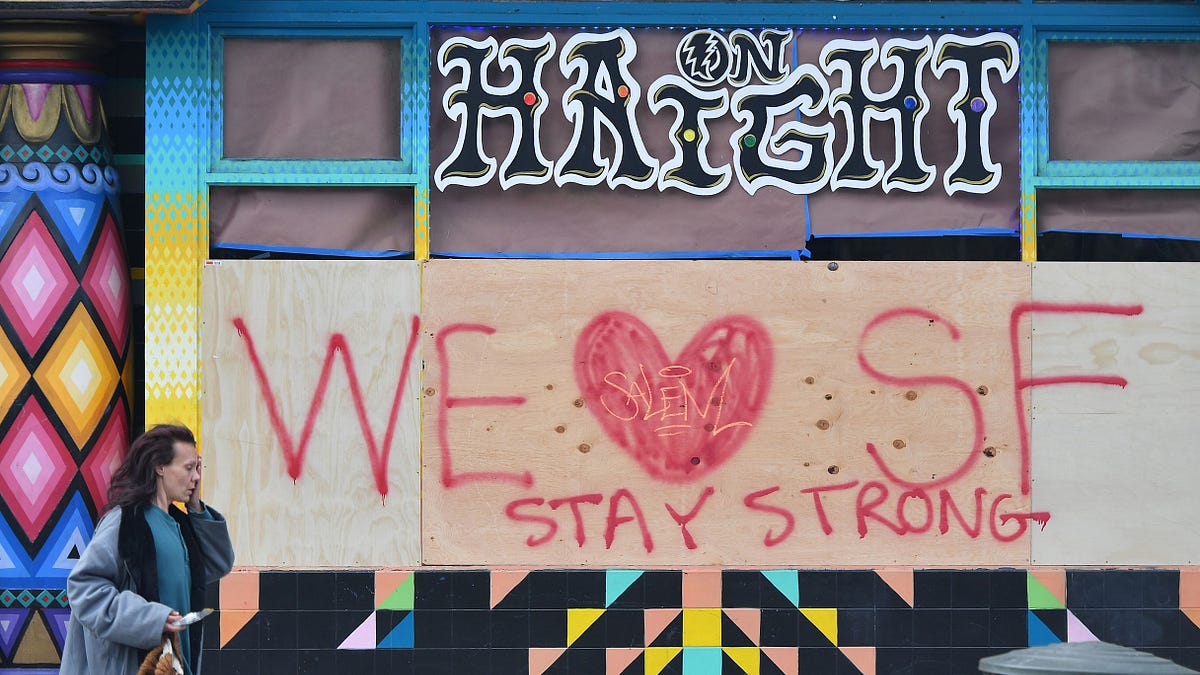 ON
HAIGHT
WE SF
SALEM
STAY STRONG